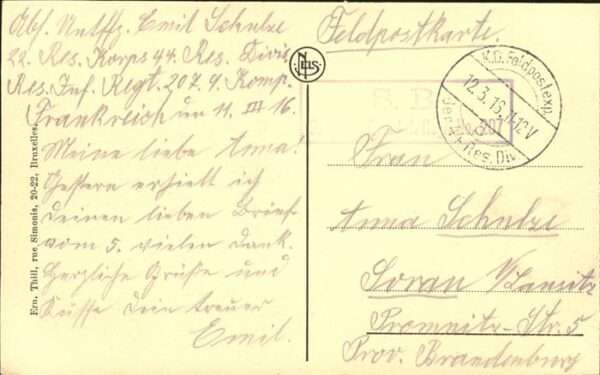 Abs. Untffz. Emil Schulze
22. Res. Korps 44. Res. Divis.
Res. Inf. Regt. 207. 9. Komp.
Frankreich den 11. III 16.
Meine liebe Anna!
Gestern erhielt ich
deinen lieben Brief
vom 5. vielen Dank.
Herzliche Grüße und
Küsse dein treuer
Emil.
Ern. Thill, rue Simonis, 20-22, Bruxelles.
NELS
Feldpostkarte.
S. B.
207
K.D. Feldpostexp.
12.3.16.
der 44. Res. Div.
Frau
Anna Schulze
Sorau N/Lausitz
Promnitz-Str. 5
Prov. Brandenburg